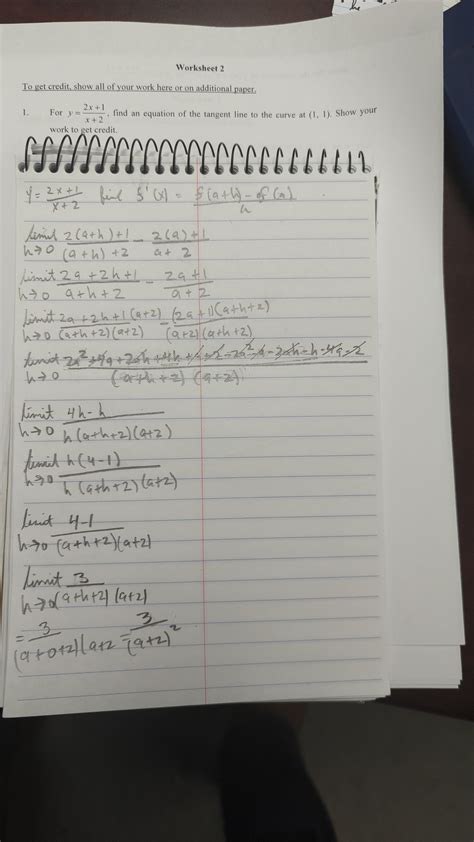 Worksheet 2
To get credit, show all of your work here or on additional paper.
1. For y = (2x+1)/(x+2), find an equation of the tangent line to the curve at (1, 1). Show your
work to get credit.
y = (2x+1)/(x+2) find f'(x) = (f(a+h) - f(a))/h
limit h→0 (2(a+h)+1)/((a+h)+2) - (2(a)+1)/(a+2)
limit h→0 (2a+2h+1)/(a+h+2) - (2a+1)/(a+2)
limit h→0 (2a+2h+1(a+2))/((a+h+2)(a+2)) - ((2a+1)(a+h+2))/((a+2)(a+h+2))
limit h→0 /((a+h+2)(a+2))
limit h→0 (4h-h)/(h(a+h+2)(a+2))
limit h→0 (h(4-1))/(h(a+h+2)(a+2))
limit h→0 (4-1)/((a+h+2)(a+2))
limit h→0 3/((a+h+2)(a+2))
= 3/((a+0+2)(a+2) = 3/(a+2)²